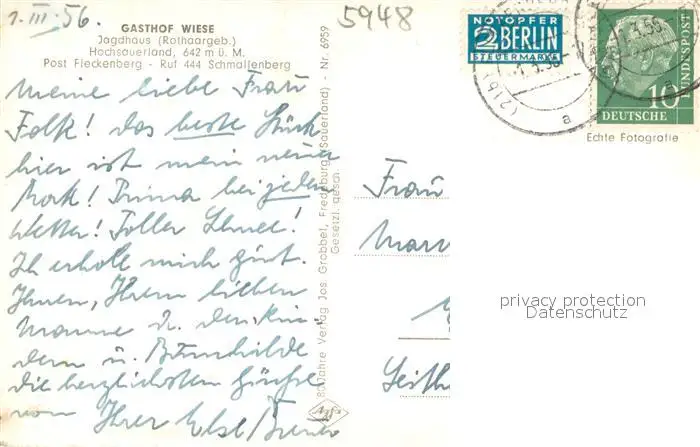 1. III. 56.
5948
GASTHOF WIESE
Jagdhaus (Rothaargeb.)
Hochsauerland, 642 m ü. M.
Post Fleckenberg - Ruf 444 Schmallenberg
Meine liebe Frau
Falk! Das beste Stück
hier ist mein neuer
Rock! Prima bei jedem
Wetter! Toller Schnee!
Ich erhole mich gut.
Ihnen, Ihrem lieben
Manne u. den Kin-
dern u. Brunhilde
die herzlichsten Grüße
von Ihrer Else
80 Jahre Verlag Jos. Grobbel, Fredeburg (Sauerland) - Nr. 6959
Gesetzl. gesch.
NOTOPFER
2 BERLIN
STEUERMARKE
10
DEUTSCHE
BUNDESPOST
Echte Fotografie
Frau
privacy protection
Datenschutz